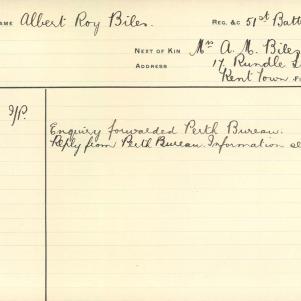 NAME Albert Roy Biles. REG. &C 51st Batt
NEXT OF KIN Mrs A. M. Biles
ADDRESS 17 Rundle
Kent Town
Enquiry forwarded Perth Bureau.
Reply from Perth Bureau. Information